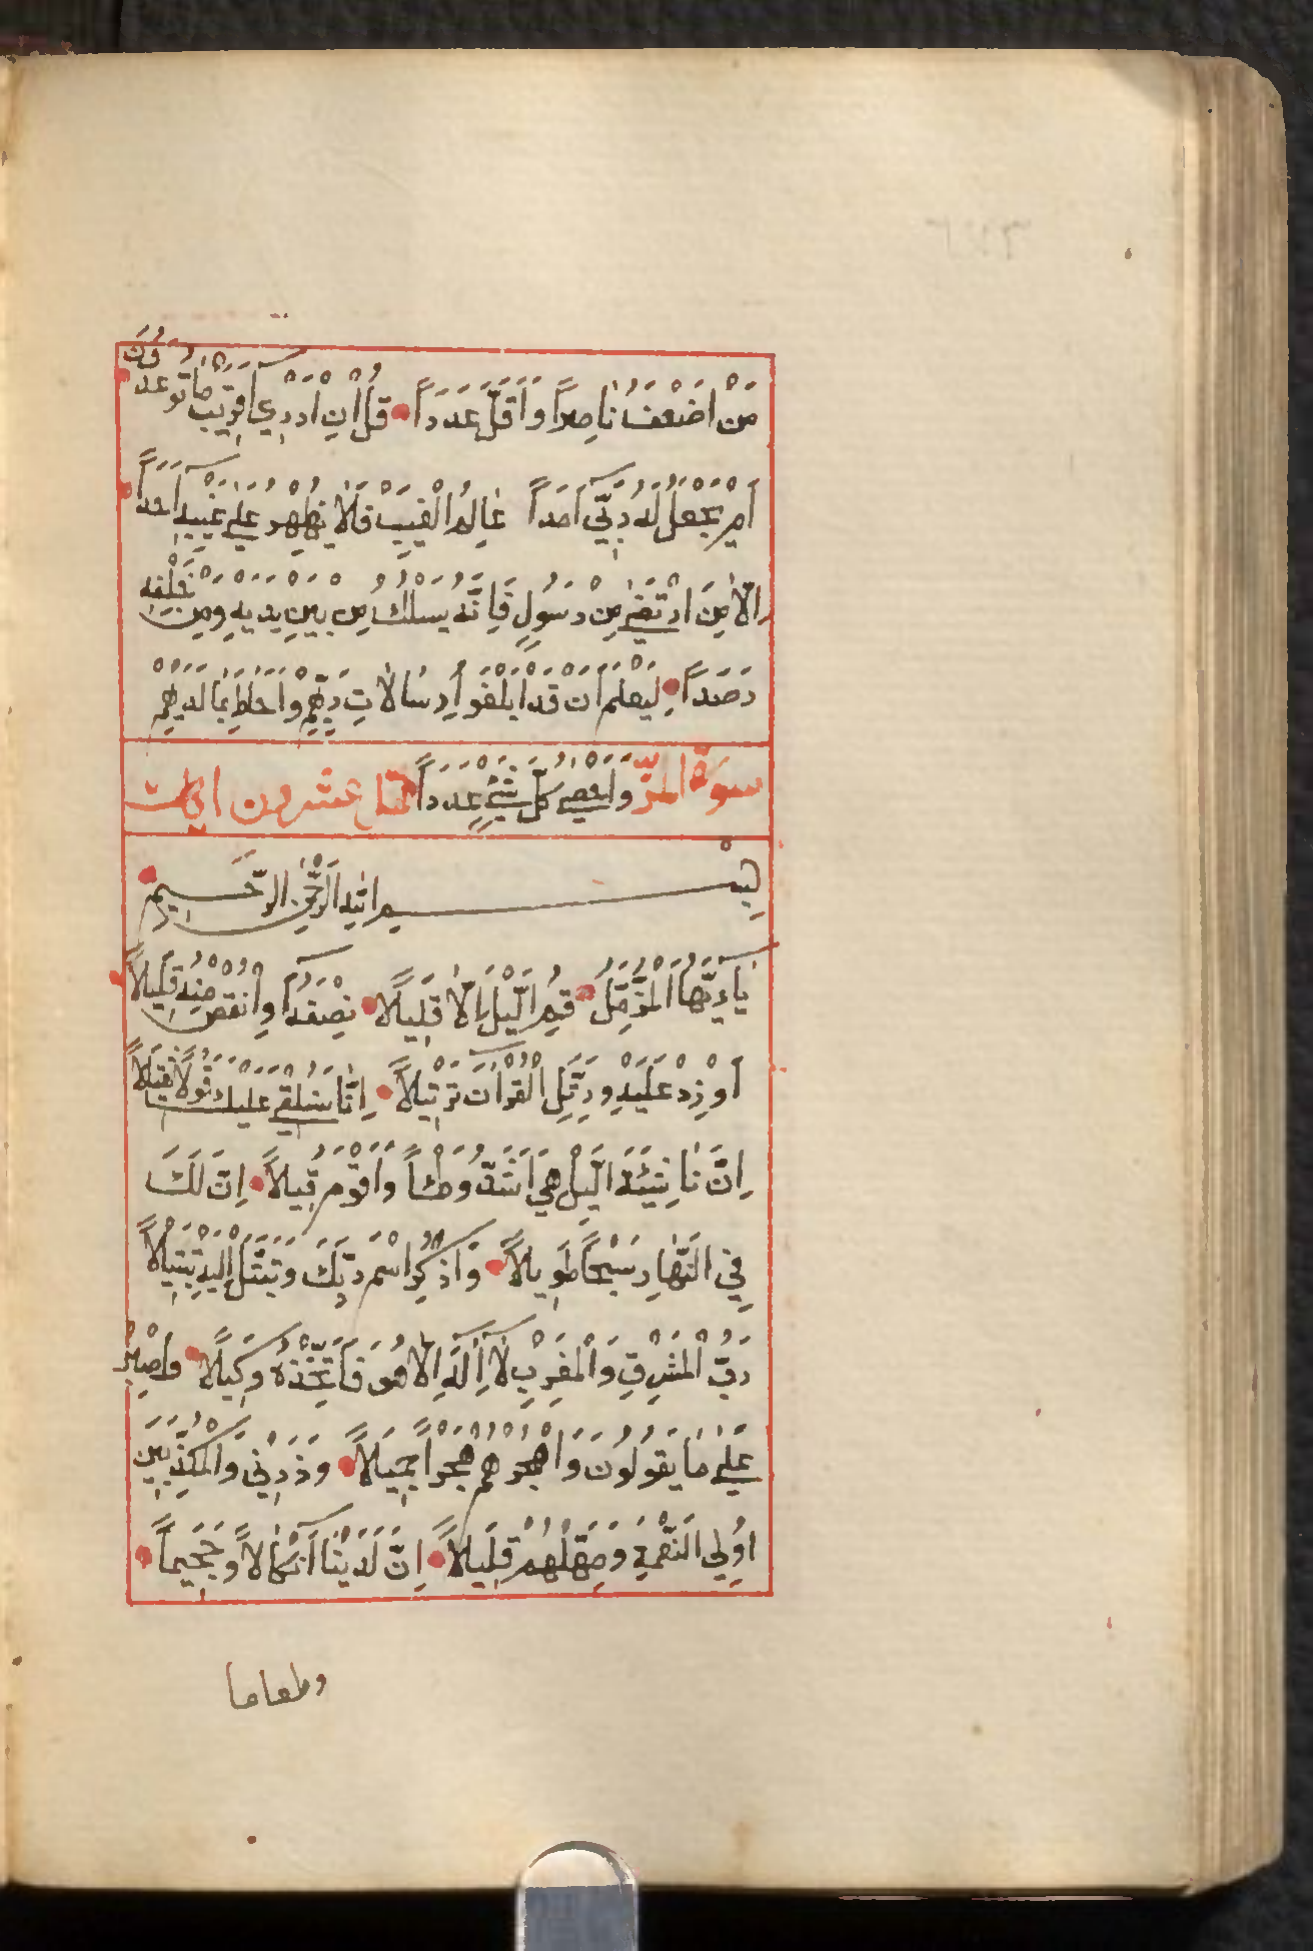 مَنْ اَضْعَفُ نَاصِراً وَاَقَلُّ عَدَداً قُلْ اِنْ اَدْرِي اَقَرِيبٌ مَا تُوعَدُونَ
اَمْ يَجْعَلُ لَهُ رَبِّي اَمَداً عَالِمُ الْغَيْبِ فَلَا يُظْهِرُ عَلٰى غَيْبِهِ اَحَداً
اِلَّا مَنِ ارْتَضٰى مِنْ رَسُولٍ فَاِنَّهُ يَسْلُكُ مِنْ بَيْنِ يَدَيْهِ وَمِنْ خَلْفِهِ
رَصَداً لِيَعْلَمَ اَنْ قَدْ اَبْلَغُوا رِسَالَاتِ رَبِّهِمْ وَاَحَاطَ بِمَا لَدَيْهِمْ
سورة المزّمّل وَاَحْصٰى كُلَّ شَيْءٍ عَدَداً عشرون ايات
بِسْمِ اللهِ الرَّحْمٰنِ الرَّحِيمِ
يَا اَيُّهَا الْمُزَّمِّلُ قُمِ الَّيْلَ اِلَّا قَلِيلاً نِصْفَهُ اَوِ انْقُصْ مِنْهُ قَلِيلاً
اَوْ زِدْ عَلَيْهِ وَرَتِّلِ الْقُرْاٰنَ تَرْتِيلاً اِنَّا سَنُلْقِي عَلَيْكَ قَوْلاً ثَقِيلاً
اِنَّ نَاشِئَةَ الَّيْلِ هِيَ اَشَدُّ وَطْـاً وَاَقْوَمُ قِيلاً اِنَّ لَكَ
فِي النَّهَارِ سَبْحاً طَوِيلاً وَاذْكُرِ اسْمَ رَبِّكَ وَتَبَتَّلْ اِلَيْهِ تَبْتِيلاً
رَبُّ الْمَشْرِقِ وَالْمَغْرِبِ لَا اِلٰهَ اِلَّا هُوَ فَاتَّخِذْهُ وَكِيلاً وَاصْبِرْ
عَلٰى مَا يَقُولُونَ وَاهْجُرْهُمْ هَجْراً جَمِيلاً وَذَرْنِي وَالْمُكَذِّبِينَ
اُولِي النَّعْمَةِ وَمَهِّلْهُمْ قَلِيلاً اِنَّ لَدَيْنَا اَنْكَالاً وَجَحِيماً
وطعاما